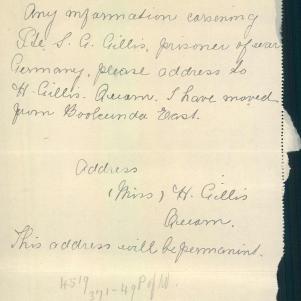 Any information corsening
Pte S. G. Gillis, prisoner of war
Germany, please address to
H Gillis. Quiam. I have moved
from Booleunda East.
Address
(Miss) H. Gillis
Quiam.
This address will be permanint.
4519
371-49 P of W.